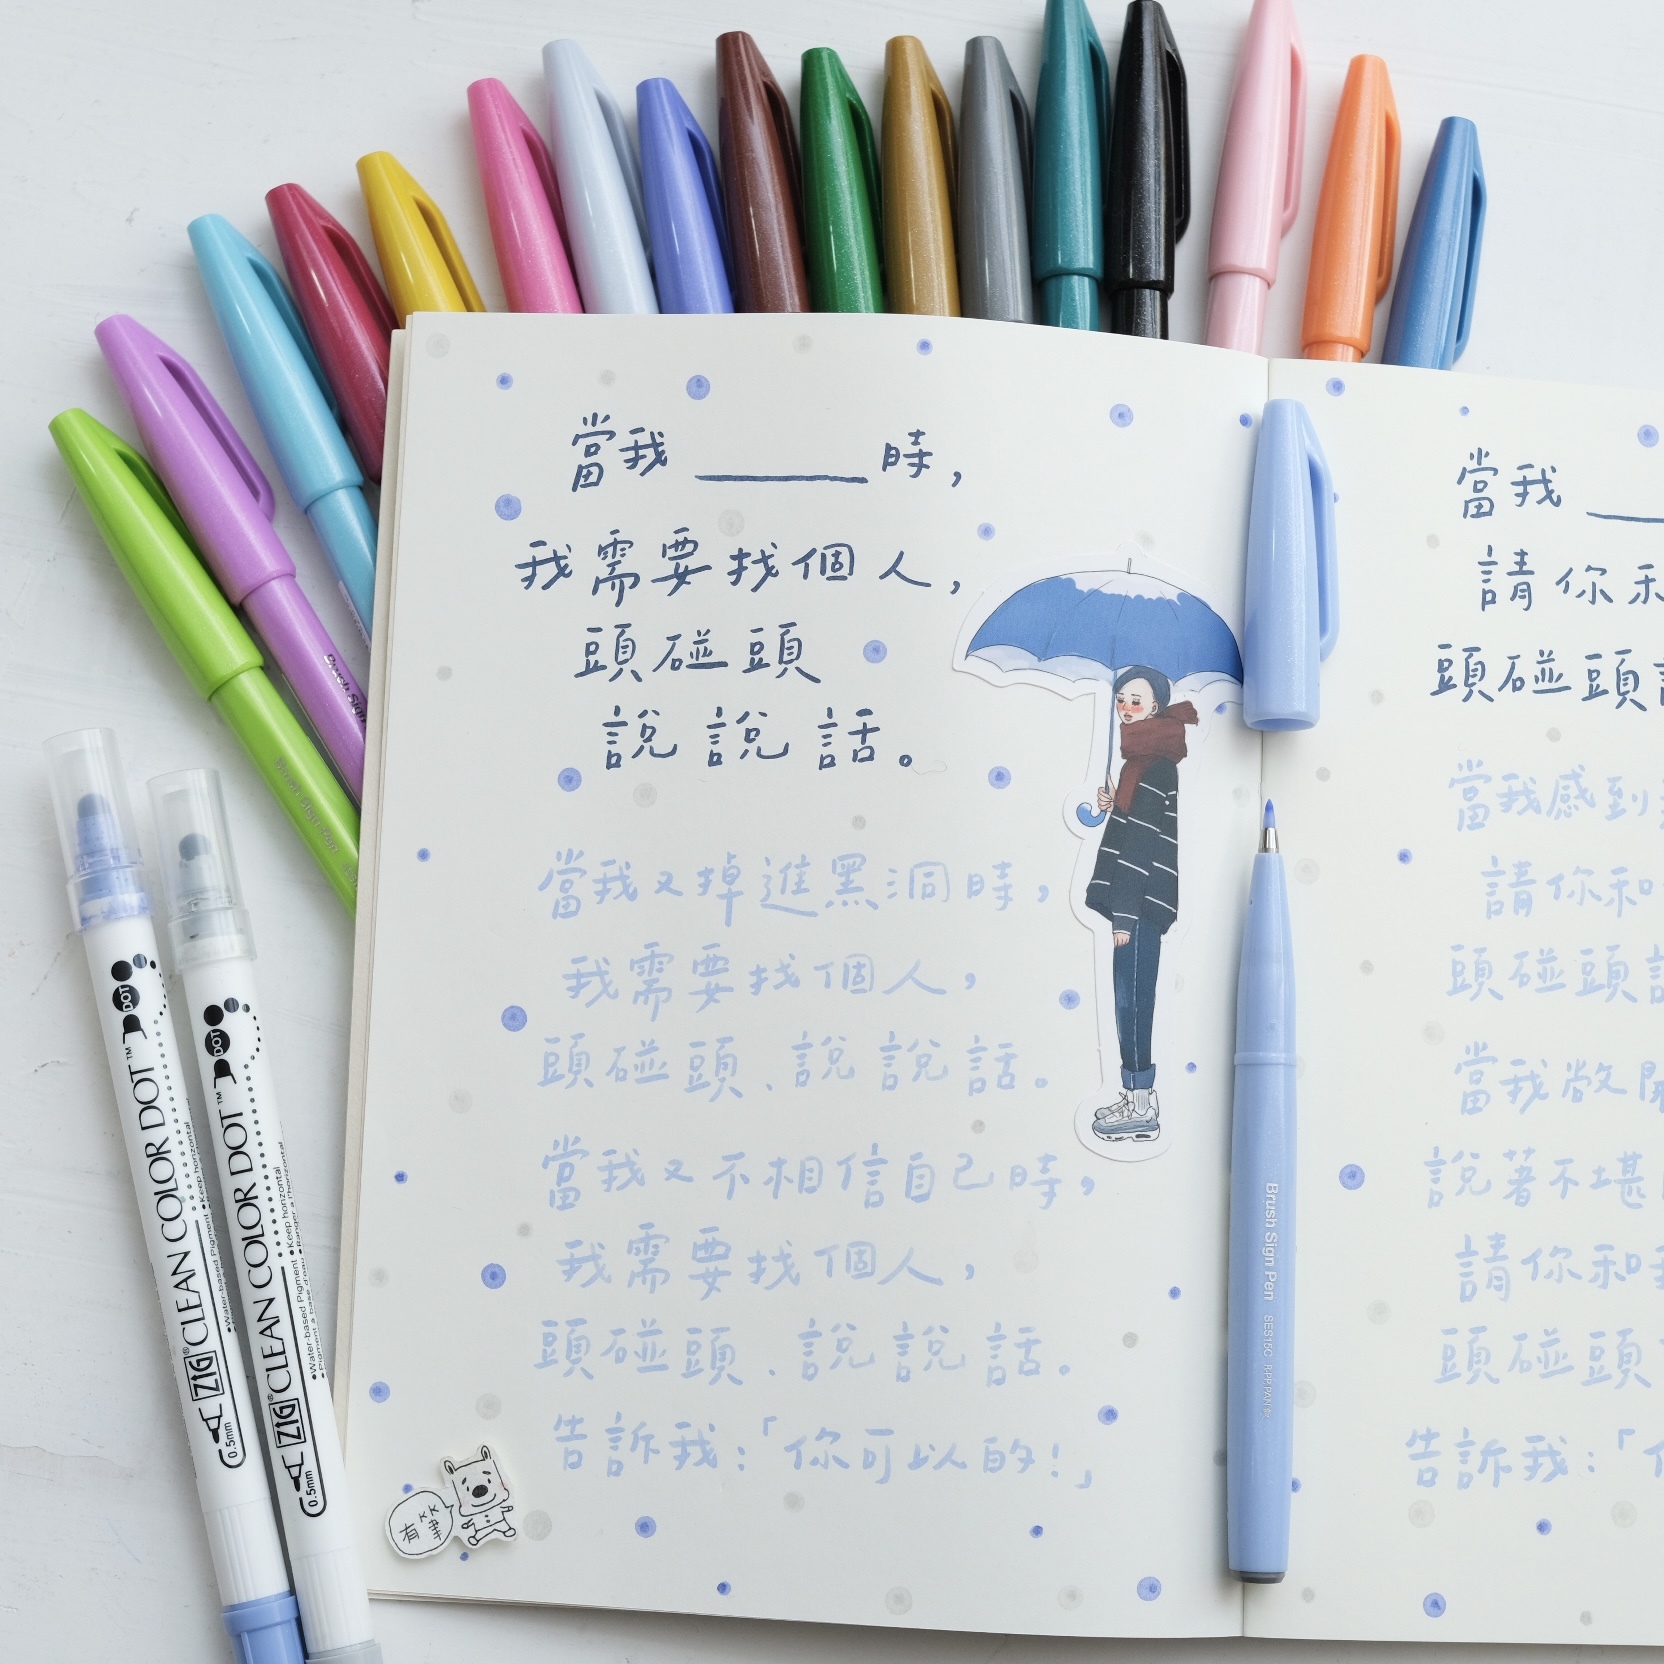 當我 ______ 時，
我需要找個人，
頭碰頭
說說話。
當我又掉進黑洞時，
我需要找個人，
頭碰頭、說說話。
當我又不相信自己時，
我需要找個人，
頭碰頭、說說話。
告訴我：「你可以的！」
有笔
當我
請你和
頭碰頭
當我感到
請你和
頭碰頭
當我敞開
說著不堪
請你和
頭碰頭
告訴我：「
Brush Sign Pen SES15C
Brush Sign
Brush Sign Pen
DOT
ZIG CLEAN COLOR DOT™
0.5mm
•Water-based Pigment •Keep horizontal
DOT
ZIG® CLEAN COLOR DOT™
0.5mm
•Water-based Pigment •Keep horizontal
•Pigment à base d'eau •Ranger à l'horizontal